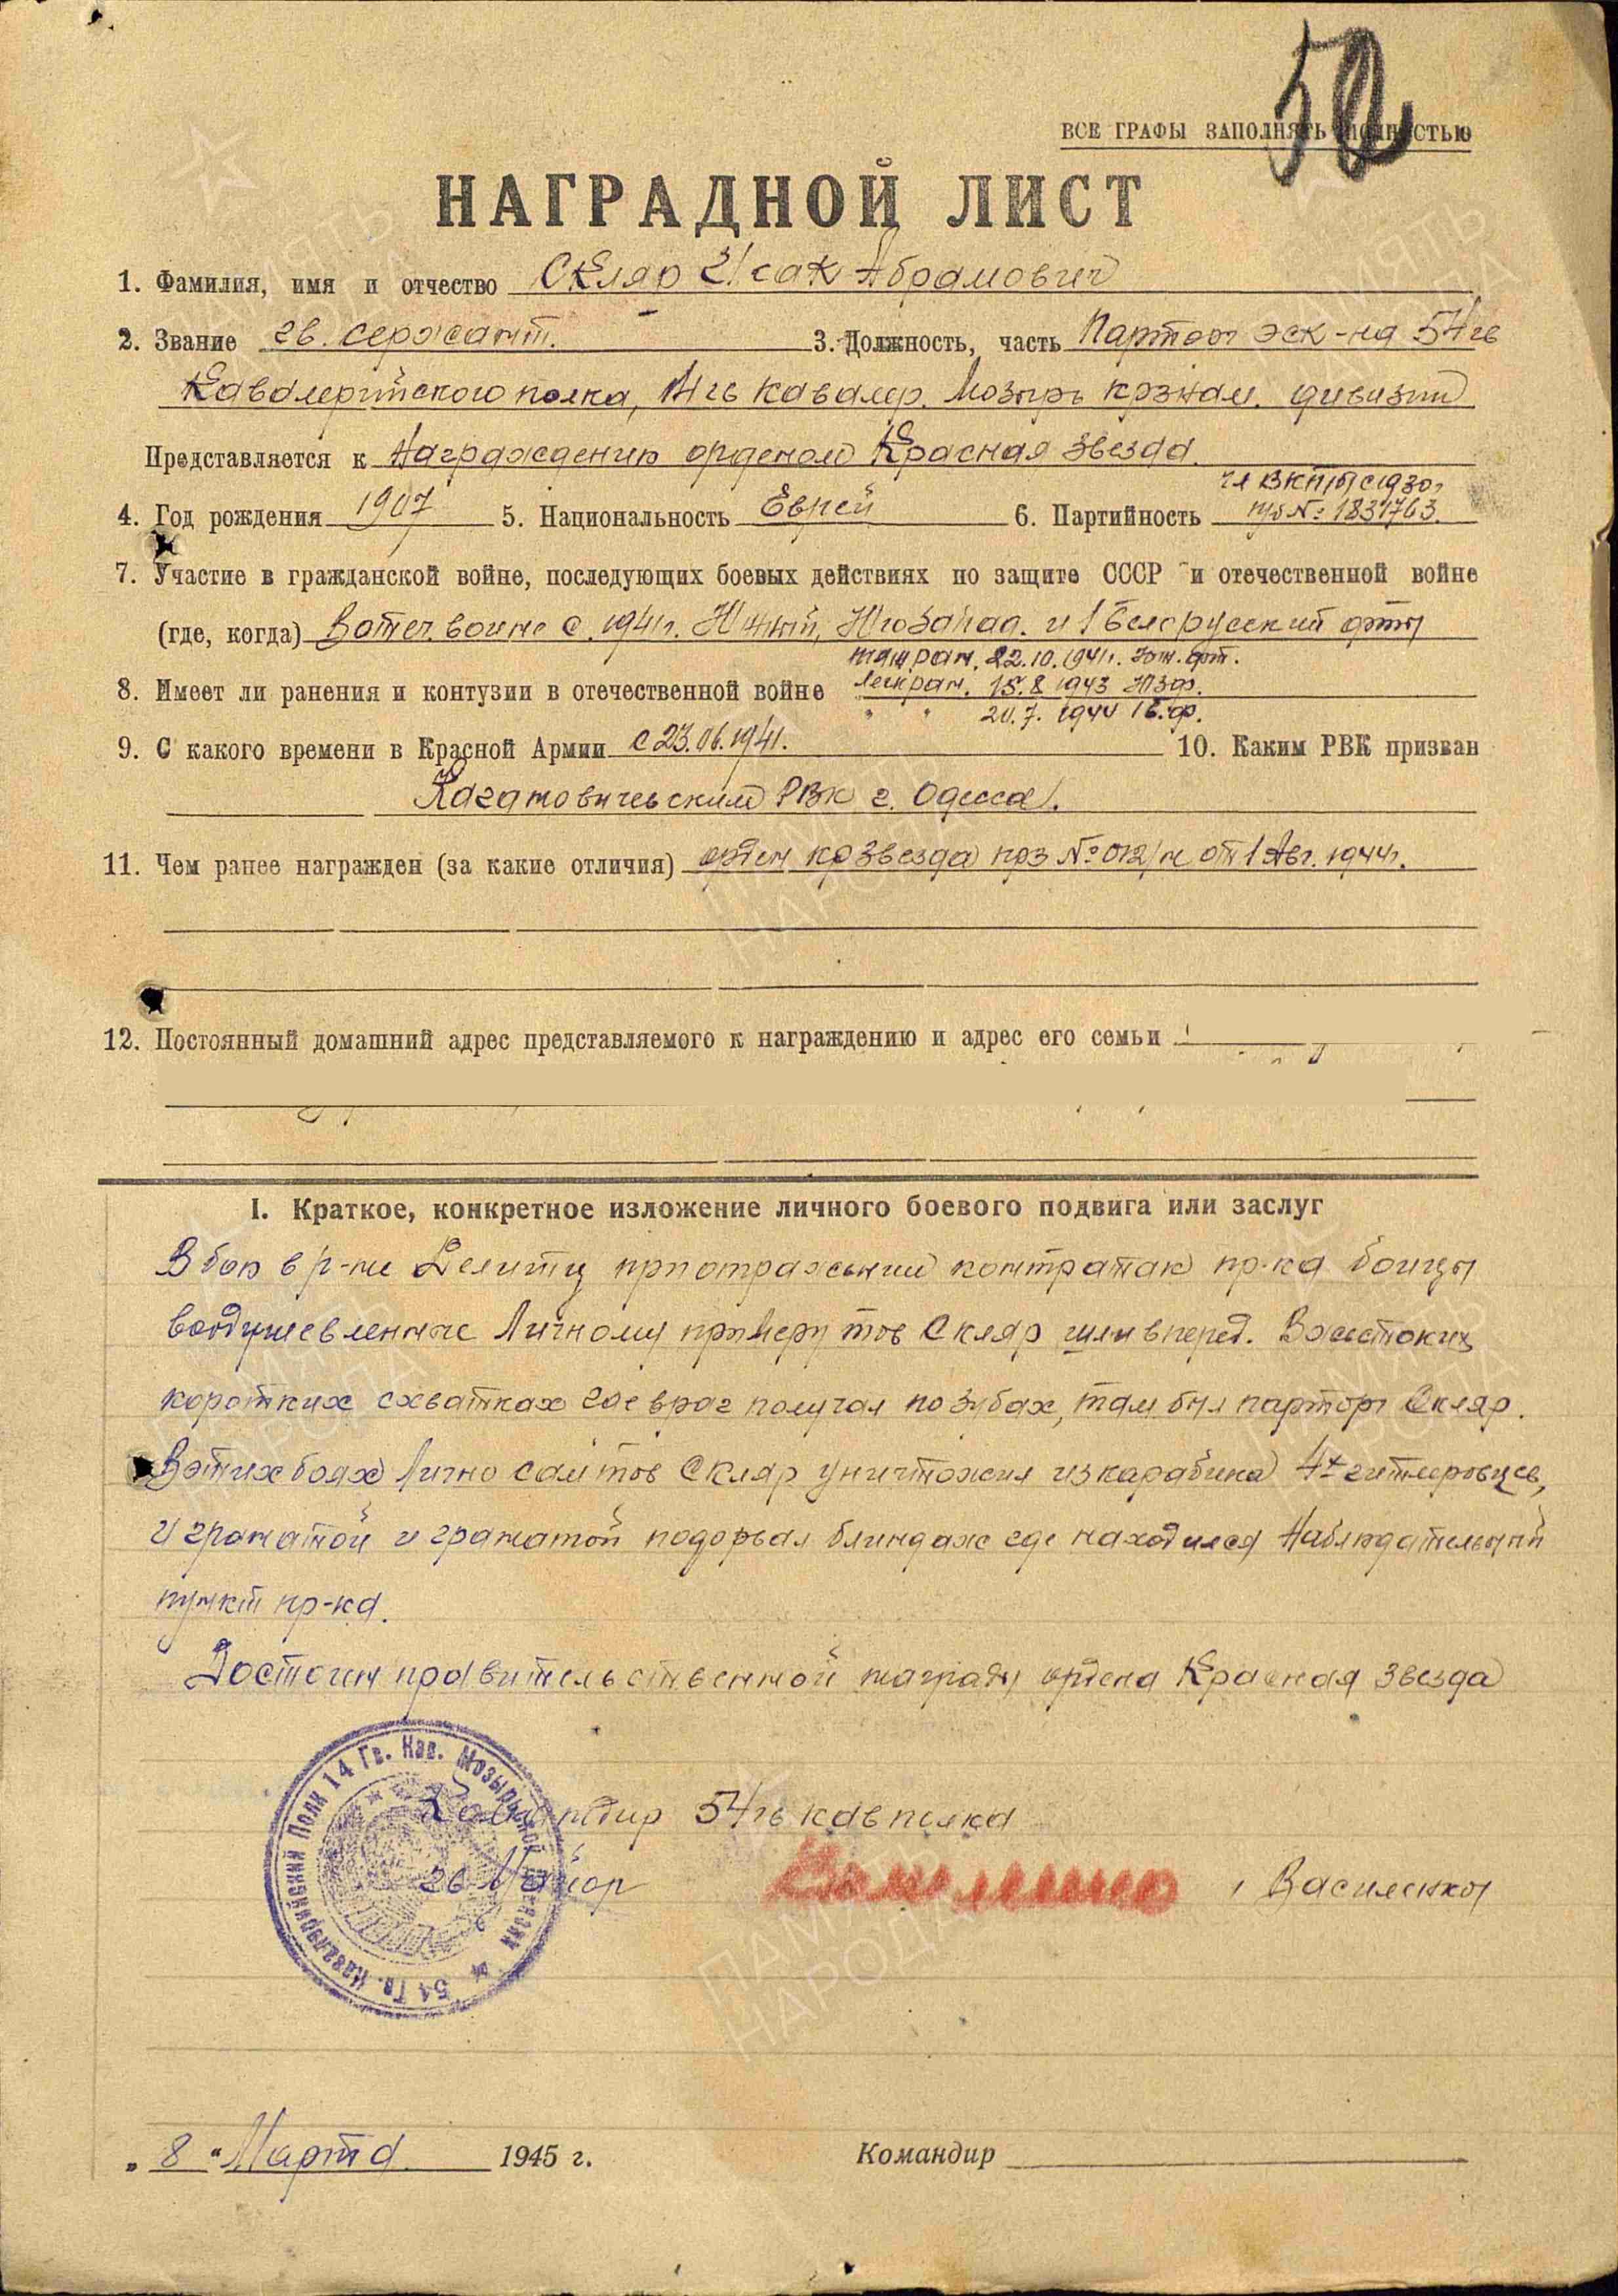 52
ВСЕ ГРАФЫ ЗАПОЛНЯТЬ ПОЛНОСТЬЮ
НАГРАДНОЙ ЛИСТ
1. Фамилия, имя и отчество Скляр Исак Абрамович
2. Звание гв. сержант. 3. Должность, часть Парторг эск-на 54 гв
Кавалерийского полка, 14 гв кавалер. Мозырь крзнам. дивизии
Представляется к Награждению орденом Красная звезда.
чл ВКП(б) с 1930г
4. Год рождения 1907 5. Национальность Еврей 6. Партийность п/б №: 1831763.
7. Участие в гражданской войне, последующих боевых действиях по защите СССР и отечественной войне
(где, когда) В отеч. войне с 1941г. Южный, Югозапад. и 1 Белорусский фты
тяж. ран. 22.10.1941г. Юж. фт.
8. Имеет ли ранения и контузии в отечественной войне Лег. ран. 15.8 1943 ЮЗф.
" " 20.7. 1944 1б. ф.
9. С какого времени в Красной Армии с 23.06.1941. 10. Каким РВК призван
Кагановическим РВК г. Одесса.
11. Чем ранее награжден (за какие отличия) орден кр звезда прз № 012/н от 1 Авг. 1944г.
12. Постоянный домашний адрес представляемого к награждению и адрес его семьи
I. Краткое, конкретное изложение личного боевого подвига или заслуг
В бою в р-не Делитц при отражении контратак пр-ка бойцы
воодушевленные Личному примеру тов Скляр шли вперед. В жестоких
коротких схватках где враг получал по зубах, там был парторг Скляр.
В этих боях Лично сам тов Скляр уничтожил из карабина 4х гитлеровцев,
и гранатой и гранатой подорвал блиндаж где находился Наблюдательный
пункт пр-ка.
Достоин правительственной награды ордена Красная звезда
Командир 54 гв кавполка
гв Майор Василенко , Василенко/
54 Гв. Кавалерийский Полк 14 Гв. Кав. Мозырьской Дивизии
„ 8 “ Марта 1945 г. Командир
ПАМЯТЬ НАРОДА